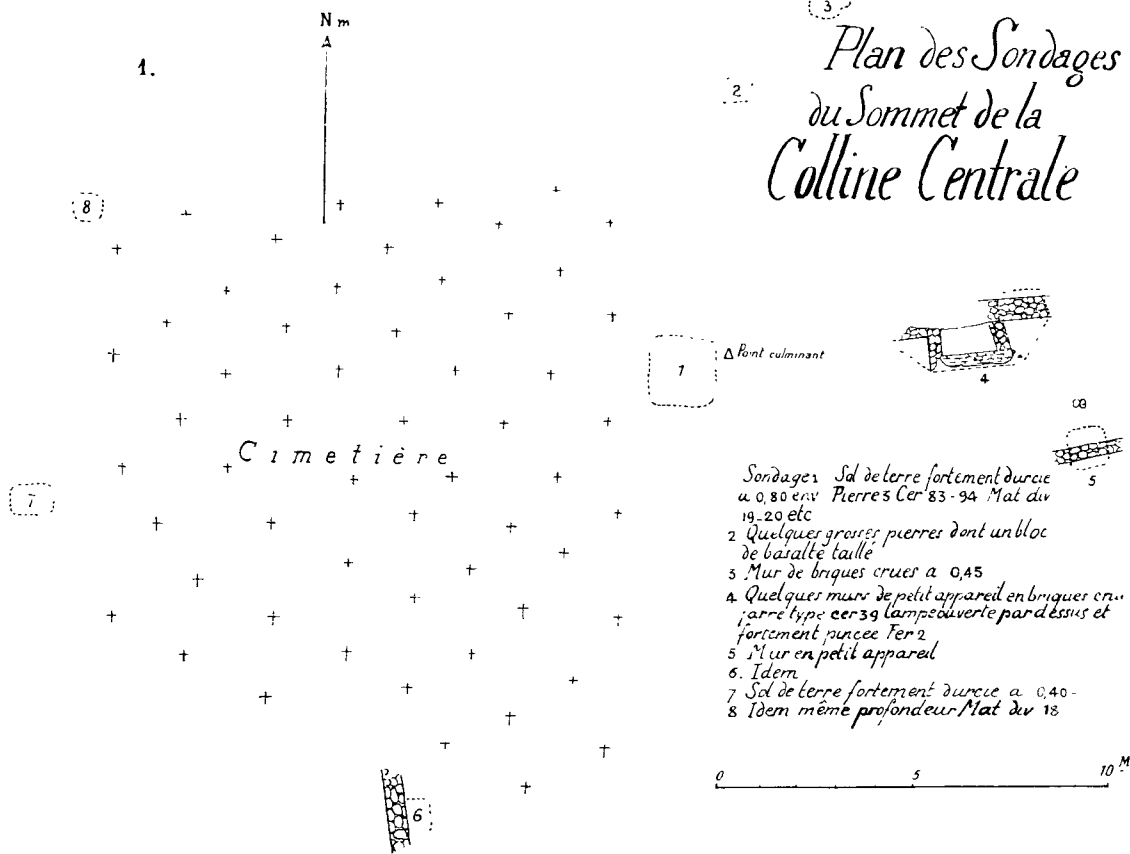 3
N m
1.
Plan des Sondages
2
du Sommet de la
Colline Centrale
8
1
Point culminant
4
Cimetière
5
7
Sondage 1 Sol de terre fortement durcie
a 0,80 env Pierre 3 Cer 83-94 Mat div
19-20 etc
2 Quelques grosses pierres dont un bloc
de basalte taillé
3 Mur de briques crues a 0,45
4 Quelques murs de petit appareil en briques cru
jarre type cer 39 lampe ouverte par dessus et
fortement pincee Fer 2
5 Mur en petit appareil
6. Idem
7 Sol de terre fortement durcie a 0,40-
8 Idem même profondeur Mat div 18
0 5 10 M
6